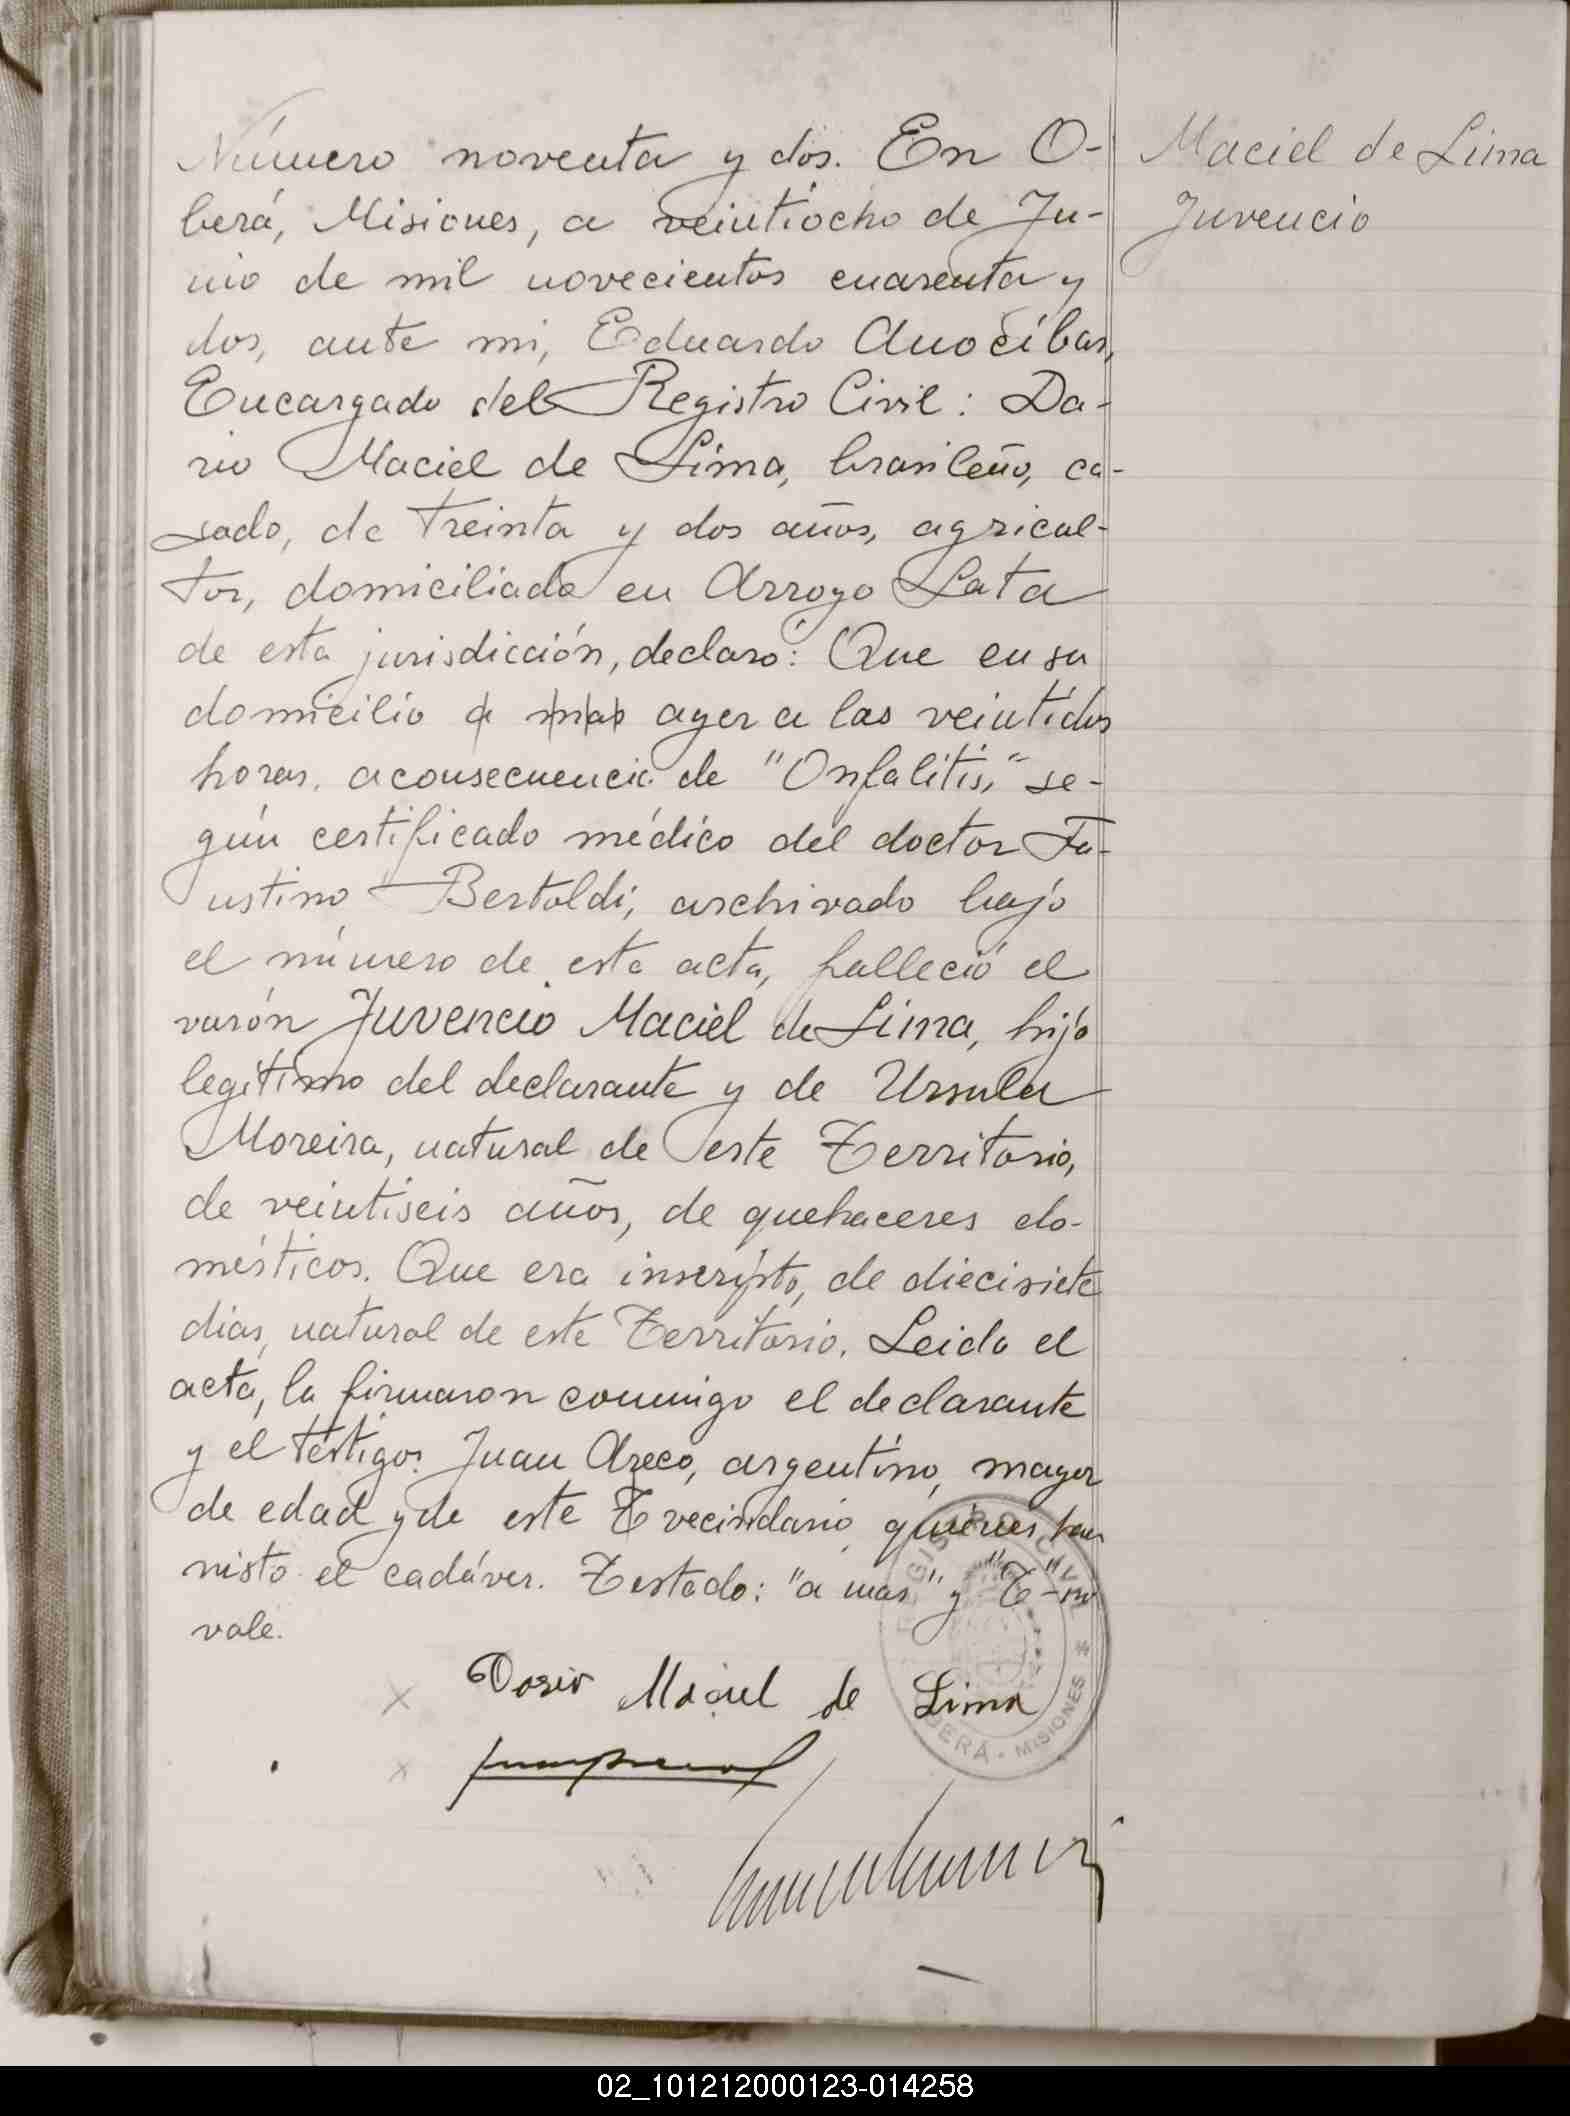 Número noventa y dos. En O-
berá, Misiones, a veintiocho de Ju-
nio de mil novecientos cuarenta y
dos, ante mi, Eduardo Anocíbar,
Encargado del Registro Civil: Da-
rio Maciel de Lima, brasileño, ca-
sado, de treinta y dos años, agricul-
tor, domiciliado en Arroyo Lata
de esta jurisdicción, declaró: Que en su
domicilio a mas ayer a las veintidos
horas, a consecuencia de "Onfalitis," se-
gún certificado médico del doctor Fa-
ustino Bertoldi, archivado bajo
el número de esta acta, falleció el
varón Juvencio Maciel de Lima, hijo
legítimo del declarante y de Ursula
Moreira, natural de este Territorio,
de veintiseis años, de quehaceres do-
mésticos. Que era inscripto, de diecisiete
dias, natural de este Territorio. Leida el
acta, la firmaron conmigo el declarante
y el testigo: Juan Areco, argentino, mayor
de edad y de este T vecindario, quienes han
visto el cadáver. Testado: "a mas" y "T"-no
vale.
Maciel de Lima
Juvencio
x Dario Maciel de Lima
x
REGISTRO CIVIL
OBERÁ - MISIONES
02_101212000123-014258